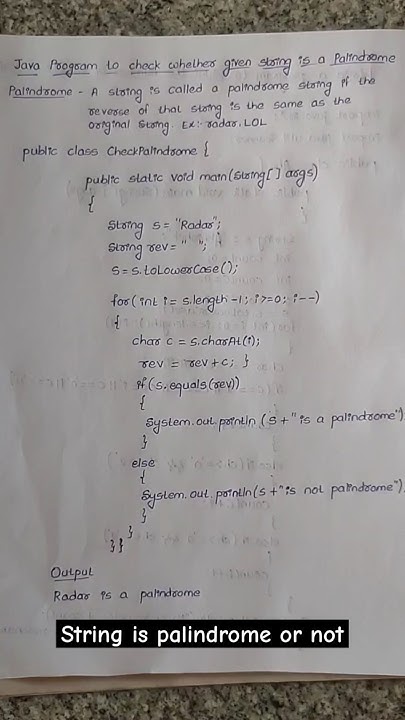 Java Program to check whether given string is a Palindrome
Palindrome - A string is called a palindrome string if the
reverse of that string is the same as the
original string. Ex:- radar, LOL
public class CheckPalindrome {
public static void main(String[] args)
{
String s = "Radar";
String rev = " ";
s = s.toLowerCase();
for(int i = s.length -1; i>=0; i--)
{
char c = s.charAt(i);
rev = rev + c; }
if(s.equals(rev))
{
System.out.println (s + " is a palindrome")
}
else
{
System.out.println(s + "is not palindrome")
}
}
}}
Output
Radar is a palindrome
String is palindrome or not